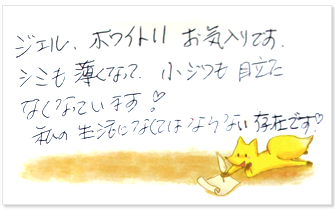 ジェル、ホワイトリリ お気入りです。
シミも薄くなって、小ジワも目立た
なくなっています!♡
私の生活になくてはならない存在です!♡